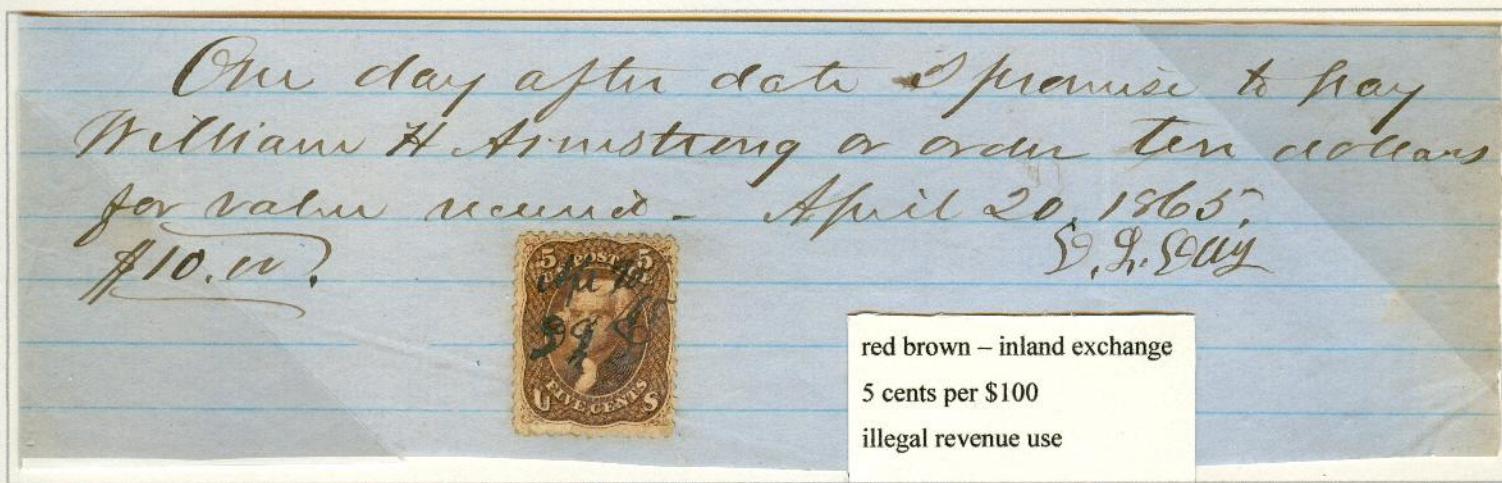 One day after date I promise to pay
William H Armstrong or order ten dollars
for value received - April 20, 1865.
$10.00.
5 5
U.S. POSTAGE
FIVE CENTS
U S
red brown – inland exchange
5 cents per $100
illegal revenue use